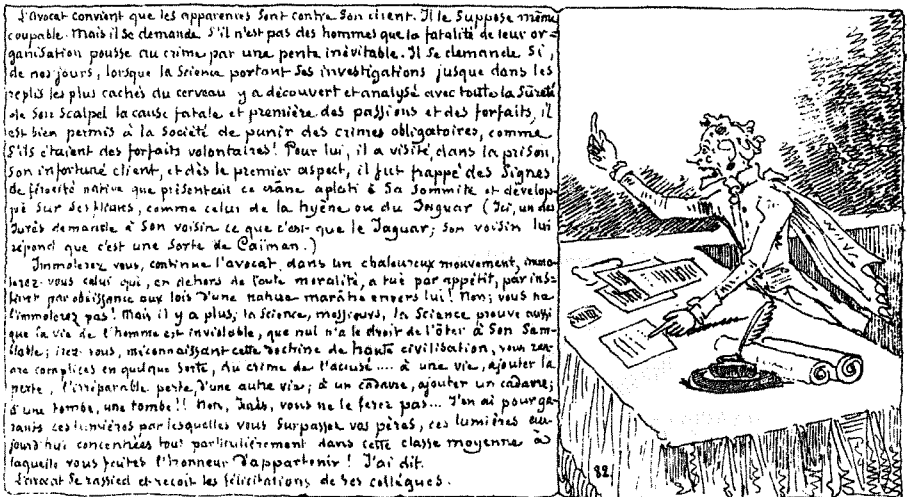 L'avocat convient que les apparences sont contre son client. Il le suppose même
coupable. Mais il se demande s'il n'est pas des hommes que la fatalité de leur or-
ganisation pousse au crime par une pente inévitable. Il se demande si,
de nos jours, lorsque la science portant ses investigations jusque dans les
replis les plus cachés du cerveau y a découvert et analysé avec toute la sûreté
de son scalpel la cause fatale et première des passions et des forfaits, il
est bien permis à la société de punir des crimes obligatoires, comme
s'ils étaient des forfaits volontaires! Pour lui, il a visité, dans la prison,
son infortuné client, et dès le premier aspect, il fut frappé des signes
de férocité native que présentait ce crâne aplati à sa sommité et dévelop-
pé sur ses flancs, comme celui de la hyène ou du Jaguar (Ici, un des
jurés demande à son voisin ce que c'est que le Jaguar; son voisin lui
répond que c'est une sorte de Caïman.)
Immolerez vous, continue l'avocat, dans un chaleureux mouvement, immo-
lerez-vous celui qui, en dehors de toute moralité, a tué par appétit, par ins-
tinct par obéissance aux lois d'une nature marâtre envers lui! Non; vous ne
l'immolerez pas! Mais il y a plus; la science, messieurs, la science prouve aussi
que la vie de l'homme est inviolable, que nul n'a le droit de l'ôter à son sem-
blable; irez-vous, méconnaissant cette doctrine de haute civilisation, vous ren-
dre complices en quelque sorte, du crime de l'accusé.... à une vie, ajouter la
perte, l'irréparable perte, d'une autre vie; à un cadavre, ajouter un cadavre;
à une tombe, une tombe!! Non, Jurés, vous ne le ferez pas... J'en ai pour ga-
rants ces lumières par lesquelles vous surpassez vos pères, ces lumières au-
jourd'hui concentrées tout particulièrement dans cette classe moyenne à
laquelle vous faites l'honneur d'appartenir! J'ai dit.
L'avocat se rassied et reçoit les félicitations de ses collègues.
82